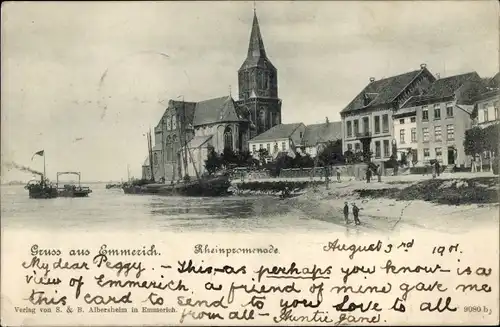 Gruss aus Emmerich.
Rheinpromenade.
August 3rd 1901.
My dear Peggy. - This - as perhaps you know is a
view of Emmerich, a friend of mine gave me
this card to send to you Love to all
from all - Auntie Jane.
Verlag von S. & B. Albersheim in Emmerich.
9080 b,